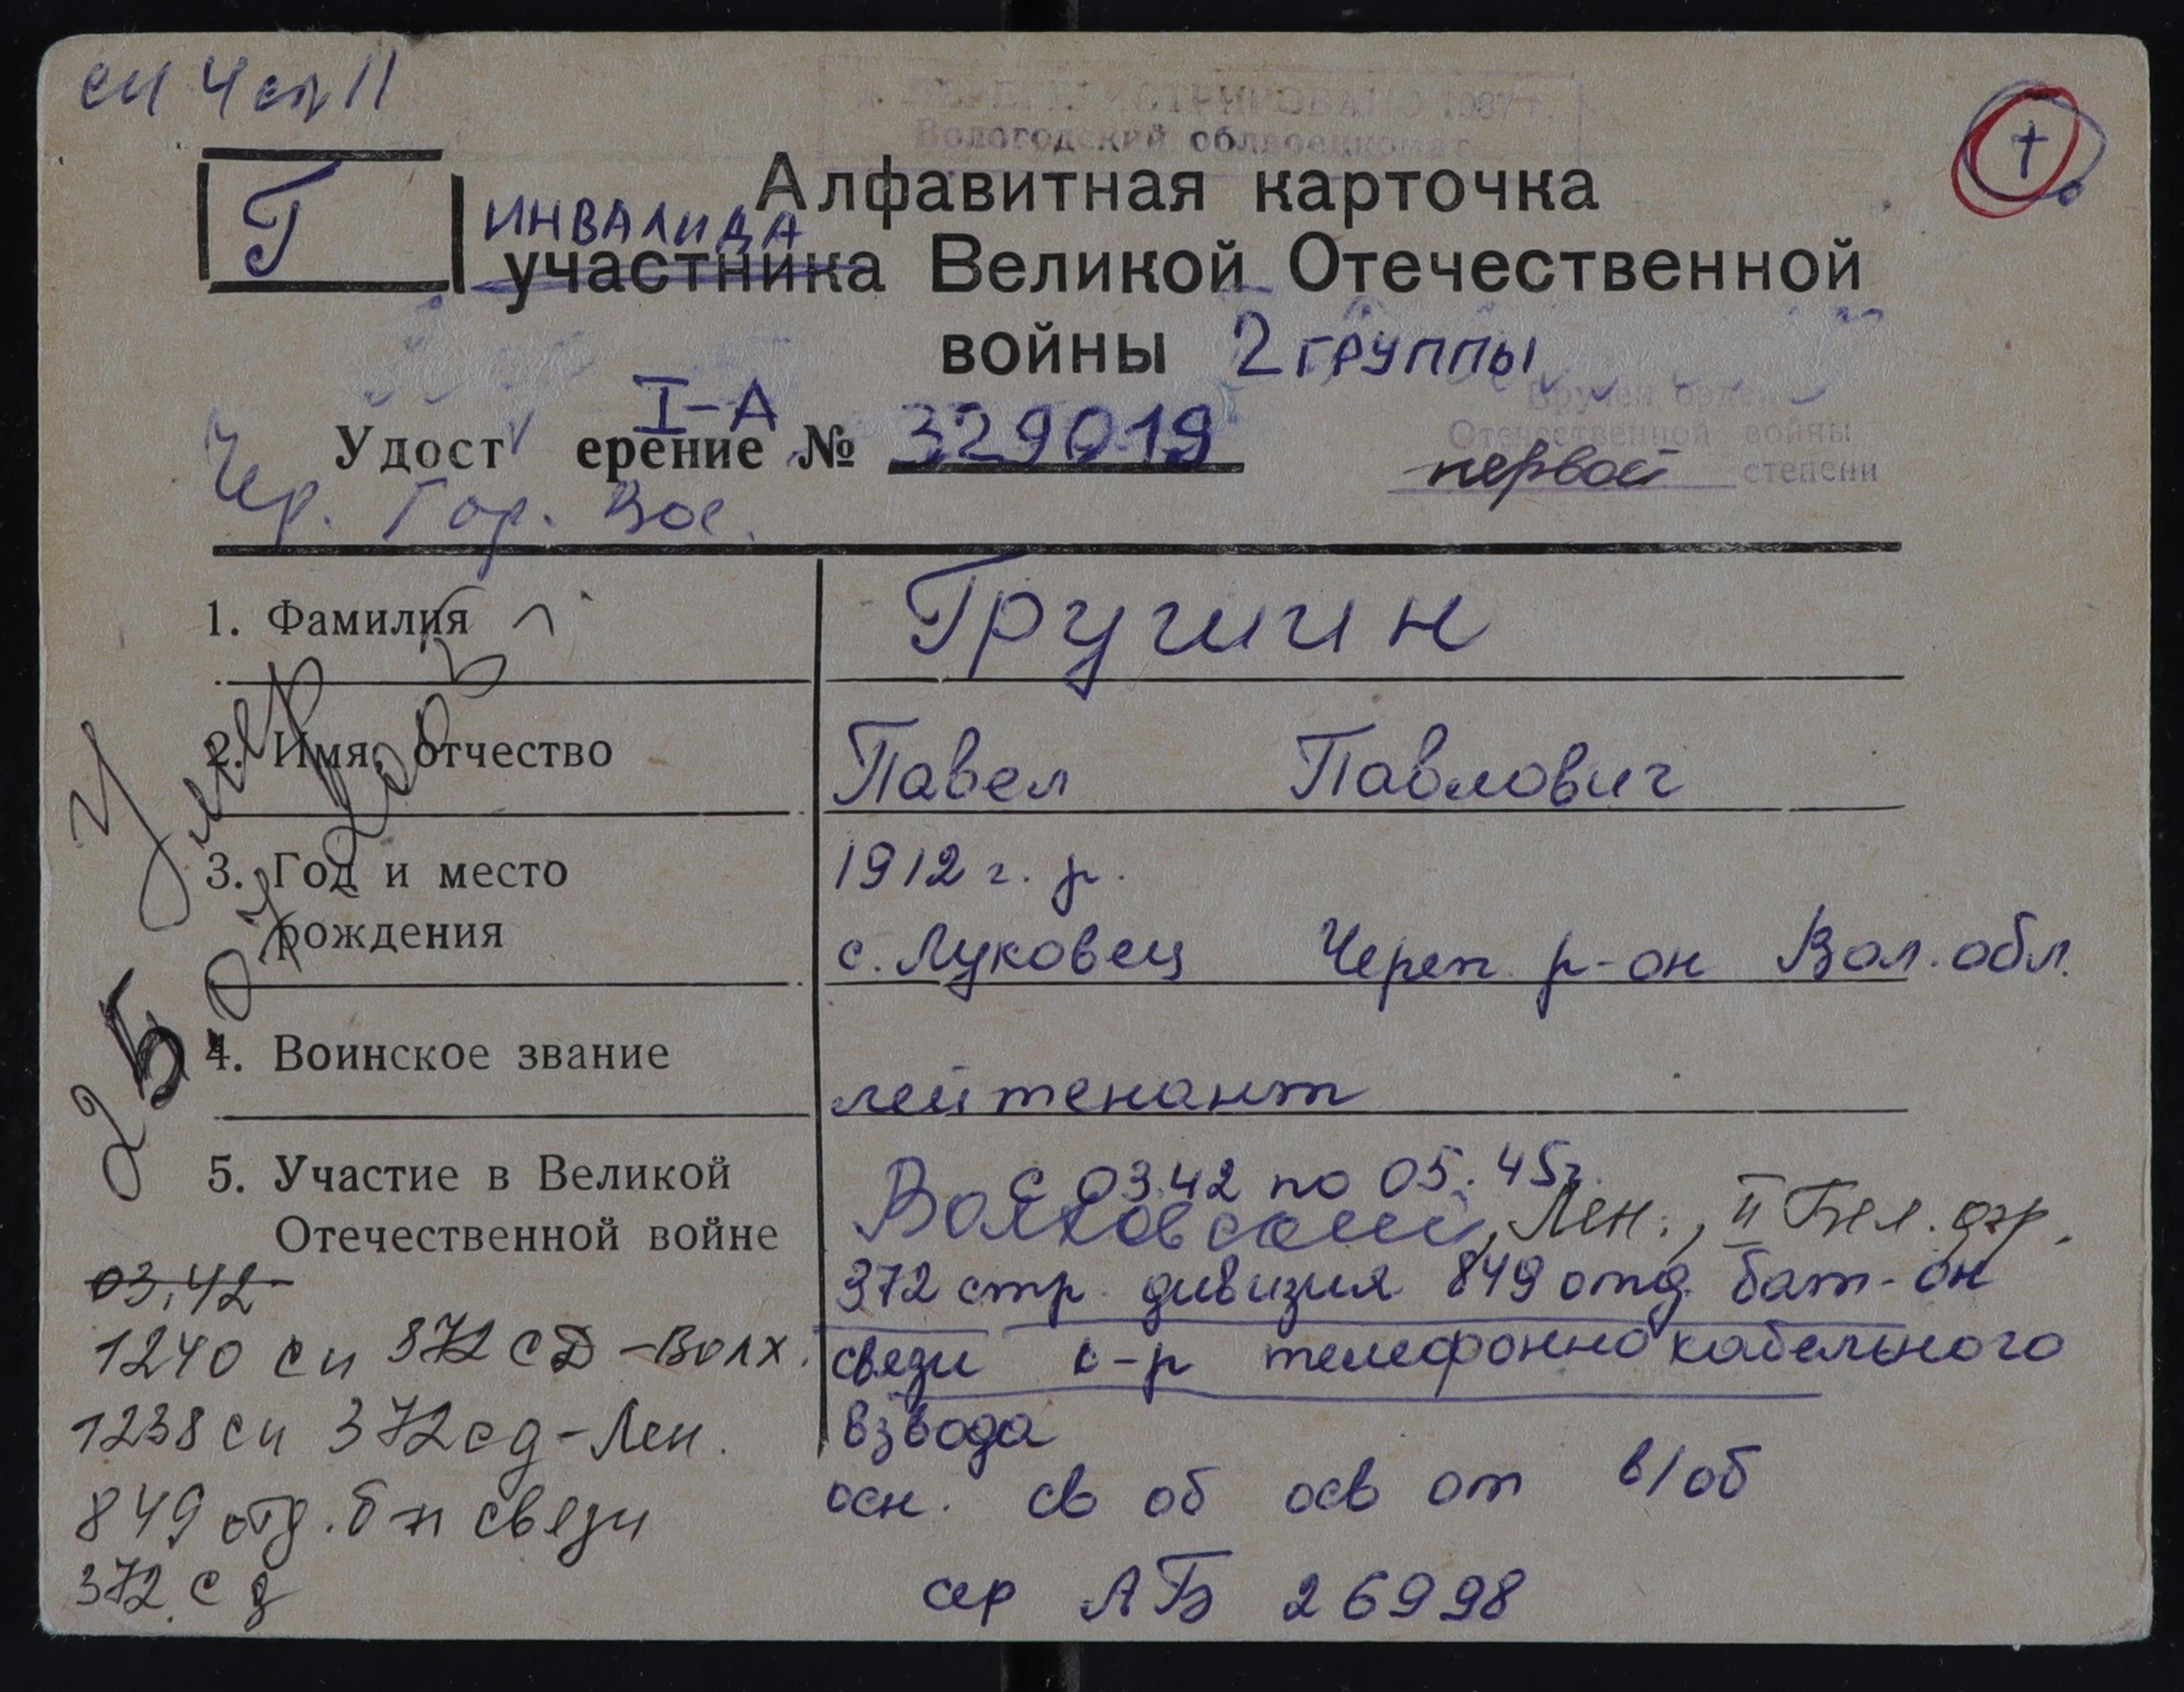 ПЕРЕРЕГИСТРИРОВАНО 1987 г.
Вологодский облвоенкомат
Г
Алфавитная карточка
ИНВАЛИДА
участника Великой Отечественной
войны 2 ГРУППЫ
Вручен орден
I-А
Удост ерение № 329019
Отечественной войны
первой степени
Чер. Гор. Вое.
1. Фамилия
Грушин
2. Имя, отчество
Павел Павлович
3. Год и место рождения
1912 г. р.
с. Луковец Череп р-он Вол. обл.
4. Воинское звание
лейтенант
5. Участие в Великой
Отечественной войне
с 03.42 по 05.45г.
Волховский, Лен., II Бел. фр.
372 стр. дивизия 849 отд. бат-он
связи к-р телефонно кабельного
взвода
осн. св об осв от в/об
сер АБ 26998
Умер
03.42
1240 сп 372 СД - Волх.
1238 сп 372 сд - Лен.
849 отд. б-н связи
372 сд